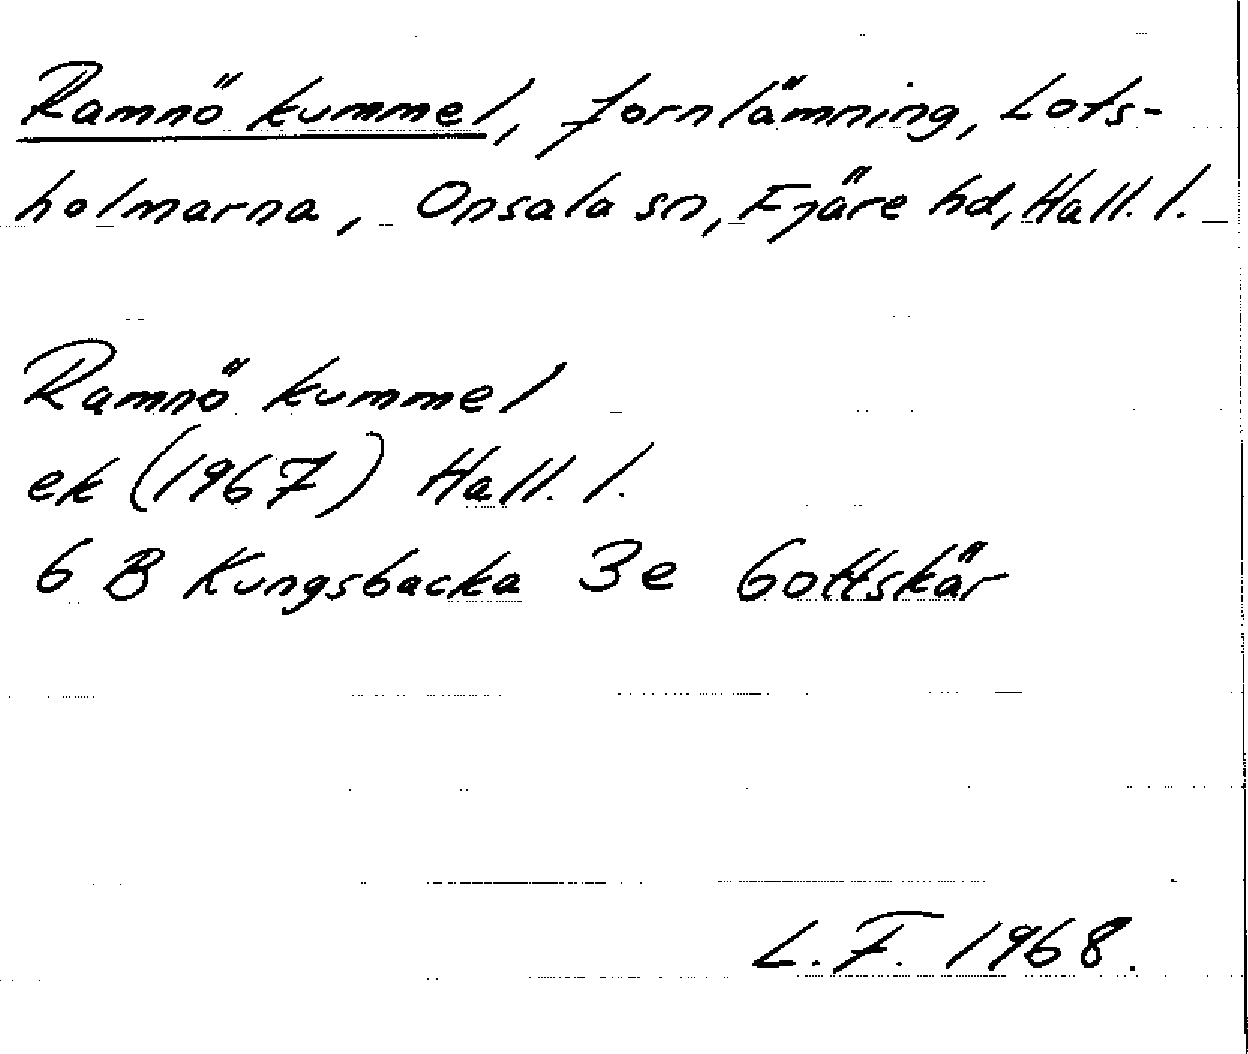 Ramnö kummel, fornlämning, Lots-
holmarna, Onsala sn, Fjäre hd, Hall. l.
Ramnö kummel
ek (1967) Hall. l.
6 B Kungsbacka 3e Gottskär
L. F. 1968.